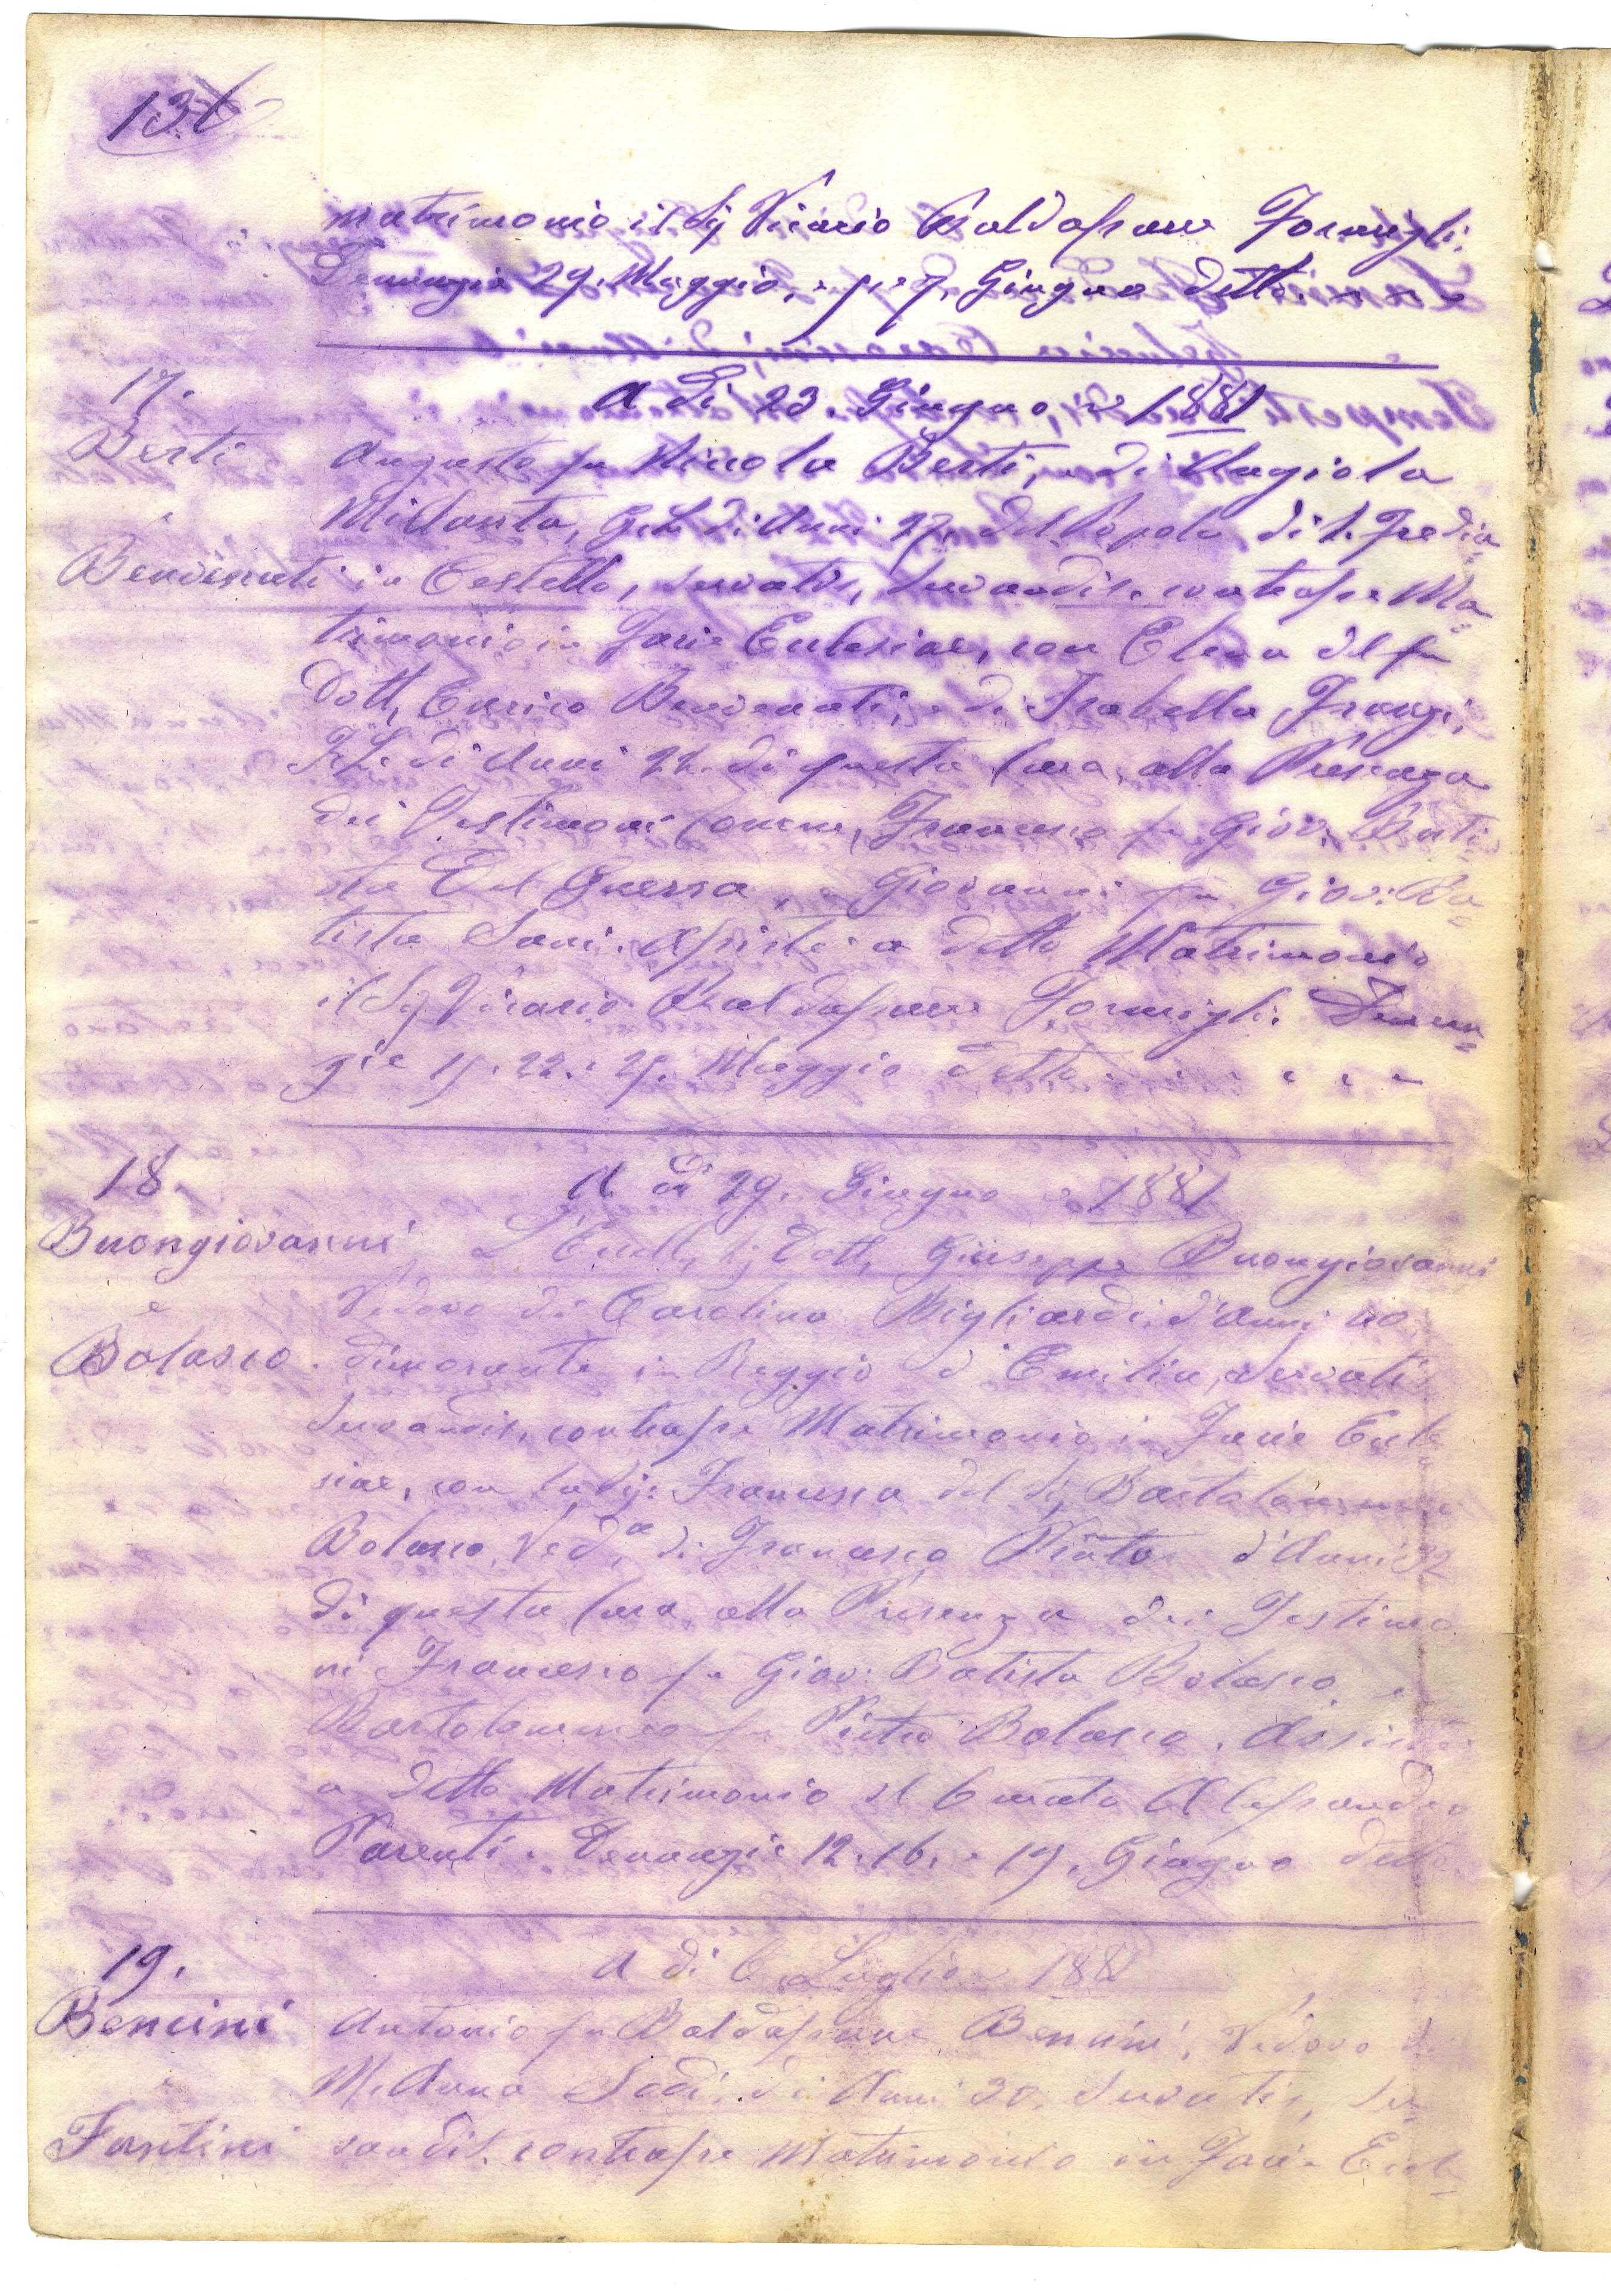 136
matrimonio il Sig Vicario Baldassarre Formigli.
Denunzie 29. Maggio, e 7. Giugno detto.
17. A dì 23. Giugno 1881
Berti Augusto fu Niccola Berti, e di Angiola
Anni 27. del Popolo di S. Fredia=
Benvenuti in Cestello, servatis, servandis. contrasse Ma=
trimonio in Facie Ecclesiae, con Elena del fu
Dott, Enrico Benvenuti, e di Isabella
di Anni 22. di questa Cura, alla Presenza
dei Testimoni Francesco fu Giov. Bati=
sta Del Guerra, e Giovanni fu Giov: Ba=
tista Sani. Assistè a detto Matrimonio
il Sig Vicario Baldassarre Formigli. Denun=
zie 15. 22. e 29. Maggio detto.
18. A dì 29. Giugno 1881
Buongiovanni L'Eccll, Sig Dott, Giuseppe Buongiovanni
e Vedovo di Carolina Migliardi. d'Anni 40
Bolasco. dimorante in Reggio d'Emilia, servatis
servandis, contrasse Matrimonio in Facie Eccle
siae, con la Sig: Francesca del Sig Bartolommeo
Bolasco, Ved,a di Francesco d'Anni 32
di questa Cura, alla Presenza dei Testimo
ni Francesco fu Giov: Batista Bolasco e
Bartolommeo fu Pietro Bolasco. Assistè
a detto Matrimonio il Curato Alessandro
Parenti. Denunzie 12. 16. e 19. Giugno detto.
19. A dì 6 Luglio 1881
Bencini Antonio fu Baldassarre Bencini, Vedovo di
e M. Anna Sodi, di Anni 30. servatis, ser=
Fantini vandis. contrasse Matrimonio in Facie Eccle=